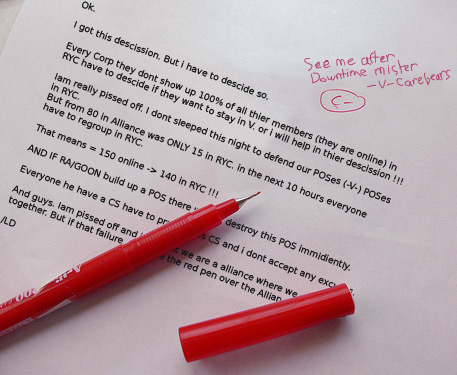 Ok.
I got this descission. But i have to descide so.
Every Corp they dont show up 100% of all thier members (they are online) in
RYC have to descide if they want to stay in V. or i will help in thier descission !!!
Iam really pissed off. I dont sleeped this night to defend our POSes (-V-) POSes
in RYC.
But from 80 in Alliance was ONLY 15 in RYC. in the next 10 hours everyone
have to regroup in RYC.
That means = 150 online -> 140 in RYC !!!
AND IF RA/GOON build up a POS there destroy this POS immidiently.
Everyone he have a CS have to CS and i dont accept any
And guys. Iam pissed off and we are a alliance where we
together. But if that failure the red pen over the
/LD
See me after
Downtime mister
-V- Carebears
C-